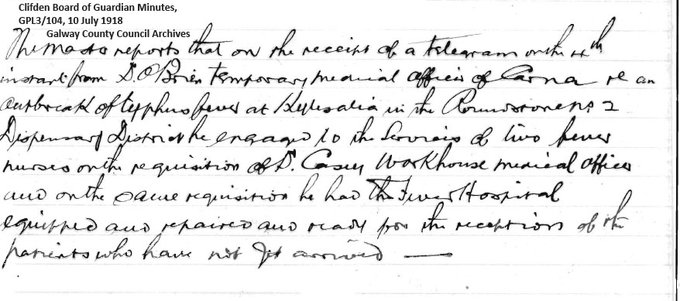 Clifden Board of Guardian Minutes,
GPL3/104, 10 July 1918
Galway County Council Archives
The Master reports that on the receipt of a telegram on the 4th
instant from Dr O'Brien temporary medical officer of Carna re an
outbreak of typhus fever at Kylesalia in the Roundstone No 2
Dispensary District he engaged to the Services of two fever
nurses on the requisition of Dr. Casey Workhouse medical officer
and on the same requisition he had the Fever Hospital
equipped and repaired and ready for the reception of the
patients who have not yet arrived —